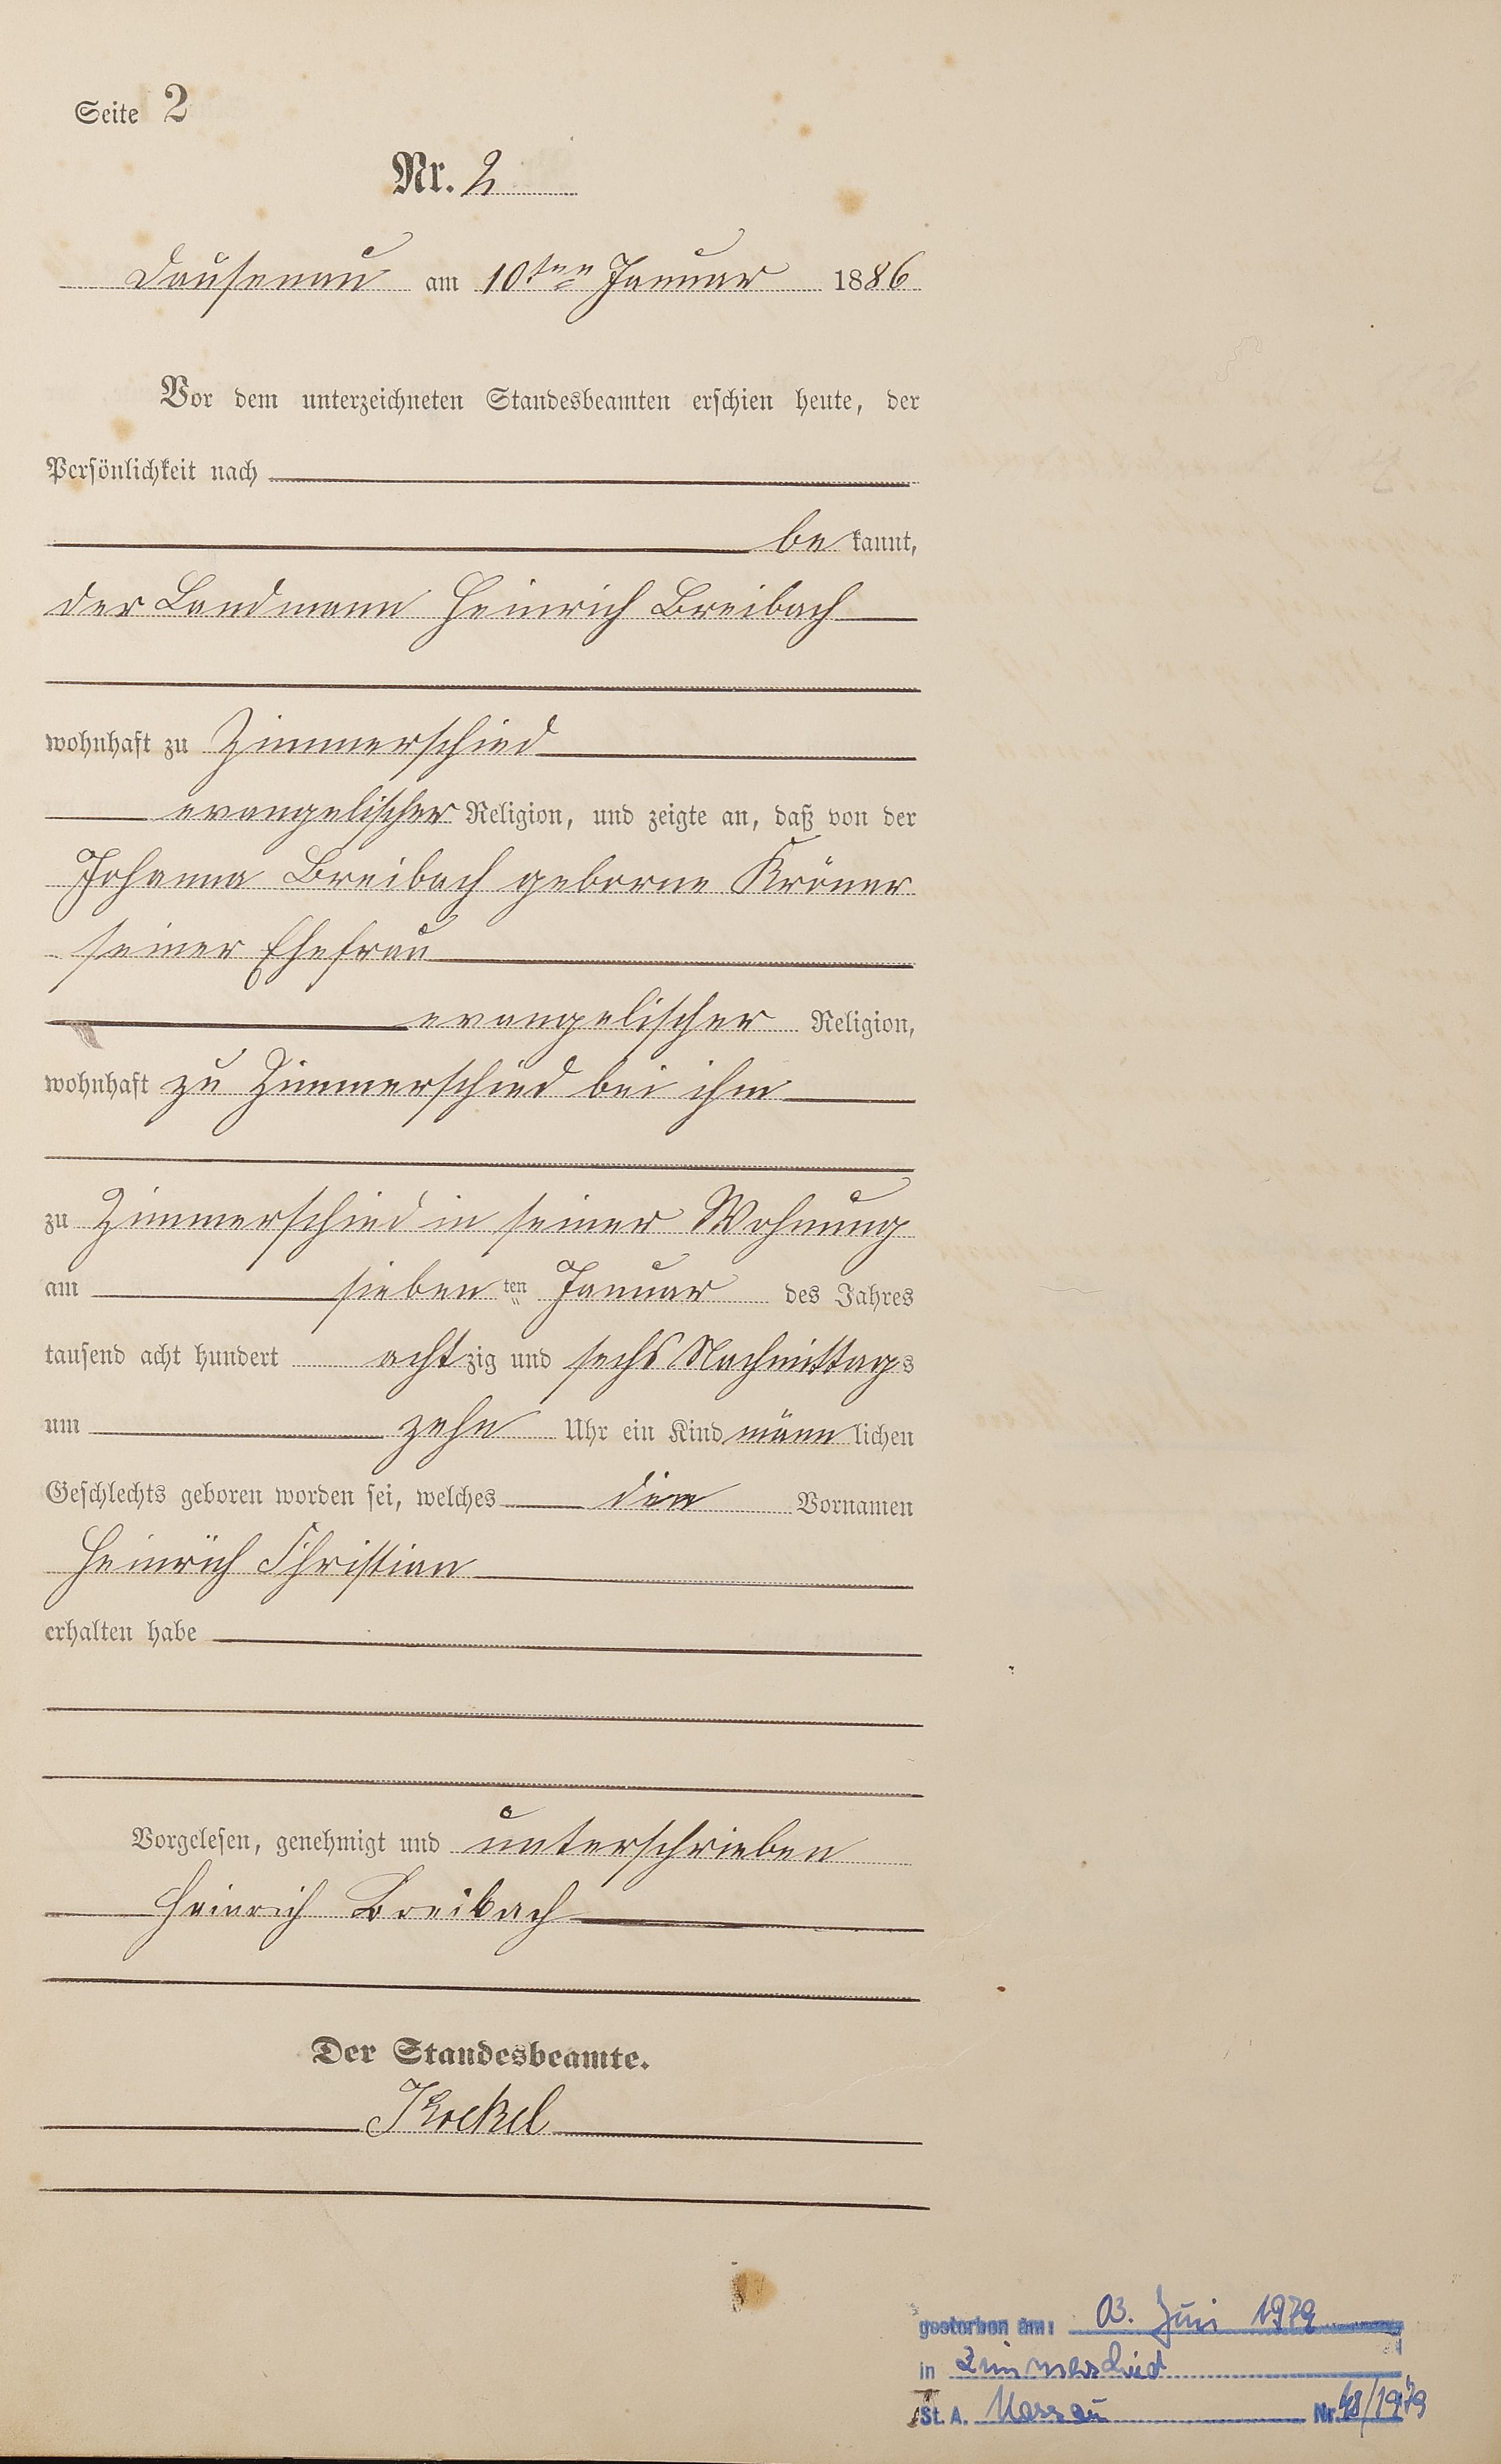 Seite 2
Nr. 2
Dausenau am 10ten Januar 1886
Vor dem unterzeichneten Standesbeamten erschien heute, der
Persönlichkeit nach
be kannt,
der Landmann Heinrich Breibach
wohnhaft zu Zimmerschied
evangelischer Religion, und zeigte an, daß von der
Johanna Breibach geborne Kröner
seiner Ehefrau
evangelischer Religion,
wohnhaft zu Zimmerschied bei ihm
zu Zimmerschied in seiner Wohnung
am sieben ten Januar des Jahres
tausend acht hundert achtzig und sechs Nachmittags
um zehn Uhr ein Kind männ lichen
Geschlechts geboren worden sei, welches die Vornamen
Heinrich Christian
erhalten habe
Vorgelesen, genehmigt und unterschrieben
Heinrich Breibach
Der Standesbeamte.
gestorben am: 03. Juni 1979
in Zimmerschied
St. A. Nassau Nr. 48/1979